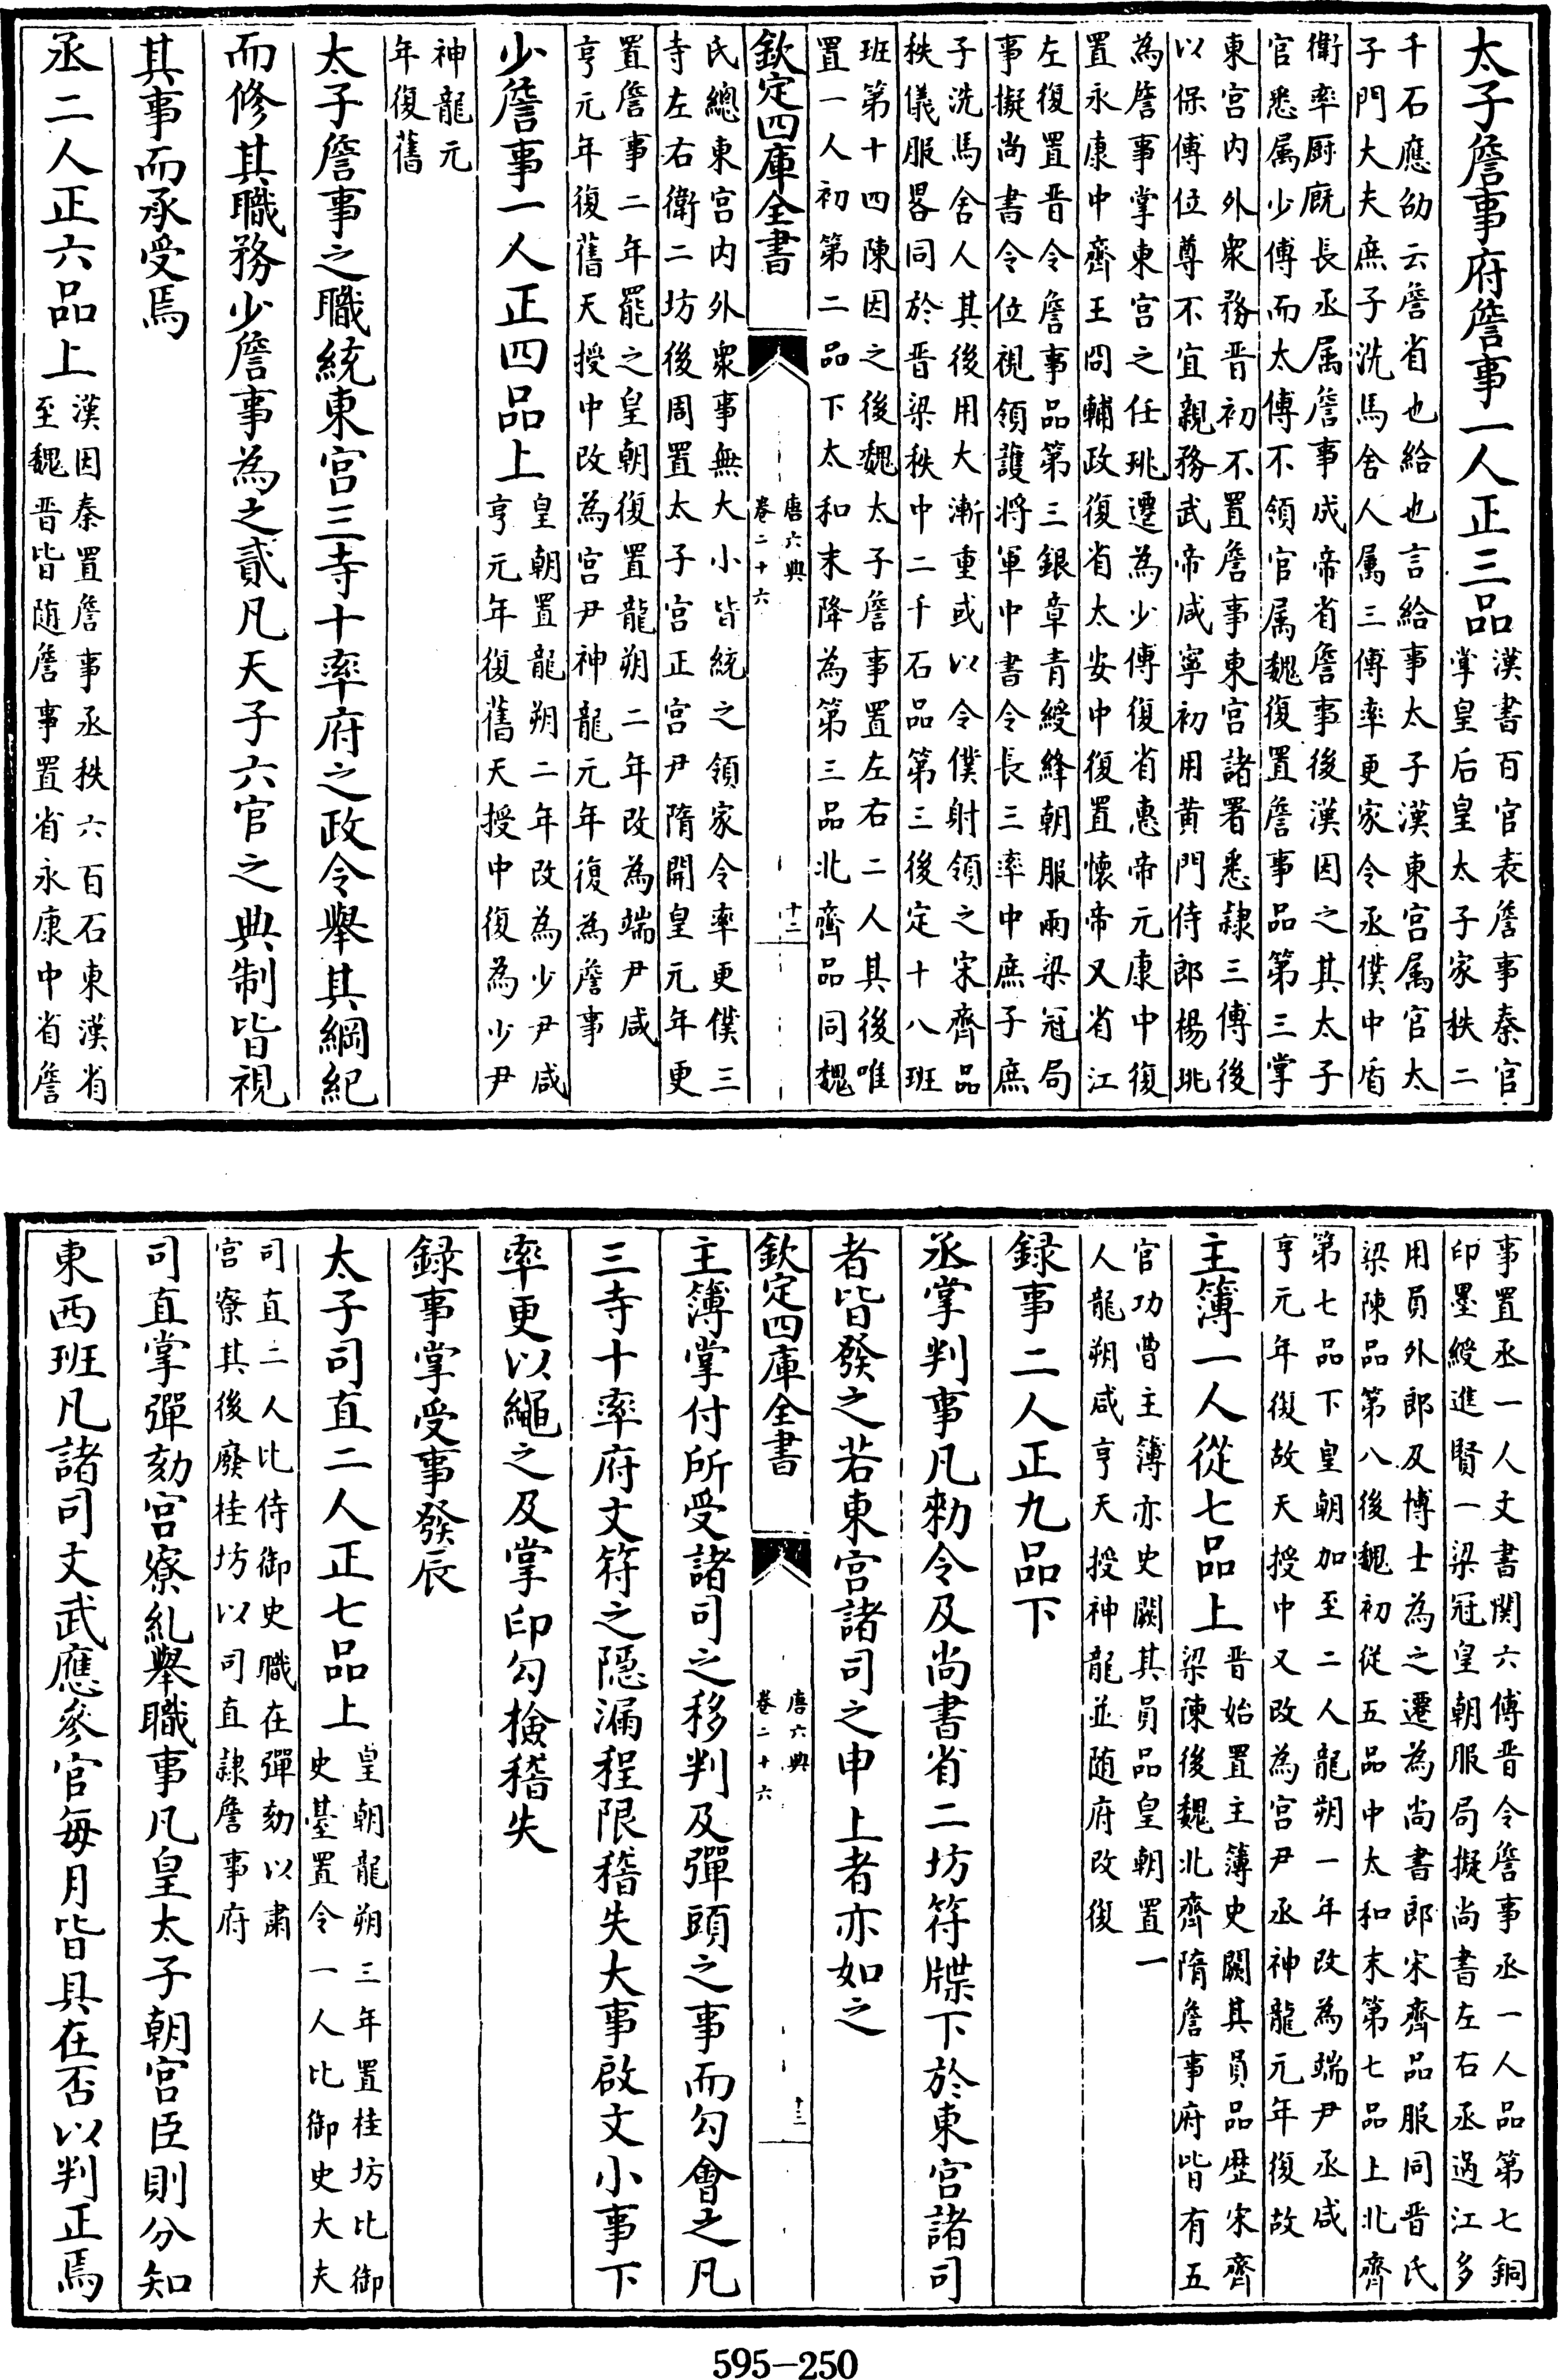 太子詹事府詹事一人正三品漢書百官表詹事秦官
掌皇后皇太子家秩二
千石應劭云詹省也給也言給事太子漢東宫属官太
子門大夫庶子洗馬舍人属三傅率更家令丞僕中盾
衛率厨厩長丞属詹事成帝省詹事後漢因之其太子
官悉属少傅而太傅不領官属魏復置詹事品第三掌
東宫内外衆務晋初不置詹事東宫諸署悉隷三傅後
以保傅位尊不宜親務武帝咸寧初用黄門侍郎楊珧
為詹事掌東宫之任珧遷為少傅復省惠帝元康中復
置永康中齊王冏輔政復省太安中復置懷帝又省江
左復置晋令詹事品第三銀章青綬絳朝服兩梁冠局
事擬尚書令位視領護將軍中書令長三率中庶子庶
子洗馬舍人其後用大漸重或以令僕射領之宋齊品
秩儀服畧同於晋梁秩中二千石品第三後定十八班
班第十四陳因之後魏太子詹事置左右二人其後唯
置一人初第二品下太和末降為第三品北齊品同魏
欽定四庫全書
唐六典
卷二十六
十二
氏總東宫内外衆事無大小皆統之領家令率更僕三
寺左右衛二坊後周置太子宫正宫尹隋開皇元年更
置詹事二年罷之皇朝復置龍朔二年改為端尹咸
亨元年復舊天授中改為宫尹神龍元年復為詹事
少詹事一人正四品上皇朝置龍朔二年改為少尹咸
亨元年復舊天授中復為少尹
神龍元
年復舊
太子詹事之職統東宫三寺十率府之政令舉其綱紀
而修其職務少詹事為之貳凡天子六官之典制皆視
其事而承受焉
丞二人正六品上漢因秦置詹事丞秩六百石東漢省
至魏晋皆随詹事置省永康中省詹
事置丞一人文書関六傅晋令詹事丞一人品第七銅
印墨綬進賢一梁冠皇朝服局擬尚書左右丞過江多
用員外郎及博士為之遷為尚書郎宋齊品服同晋氏
梁陳品第八後魏初從五品中太和末第七品上北齊
第七品下皇朝加至二人龍朔一年改為端尹丞咸
亨元年復故天授中又改為宫尹丞神龍元年復故
主簿一人從七品上晋始置主簿史闕其員品歴宋齊
梁陳後魏北齊隋詹事府皆有五
官功曹主簿亦史闕其員品皇朝置一
人龍朔咸亨天授神龍並随府改復
録事二人正九品下
丞掌判事凡勑令及尚書省二坊符牒下於東宫諸司
者皆發之若東宫諸司之申上者亦如之
欽定四庫全書
唐六典
卷二十六
十三
主簿掌付所受諸司之移判及彈頭之事而勾會之凡
三寺十率府文符之隠漏程限稽失大事啟文小事下
率更以繩之及掌印勾檢稽失
録事掌受事發辰
太子司直二人正七品上皇朝龍朔三年置桂坊比御
史臺置令一人比御史大夫
司直二人比侍御史職在彈劾以肅
宫寮其後廢桂坊以司直隷詹事府
司直掌彈劾宫寮糺舉職事凡皇太子朝宫臣則分知
東西班凡諸司文武應叅官每月皆具在否以判正焉
595-250